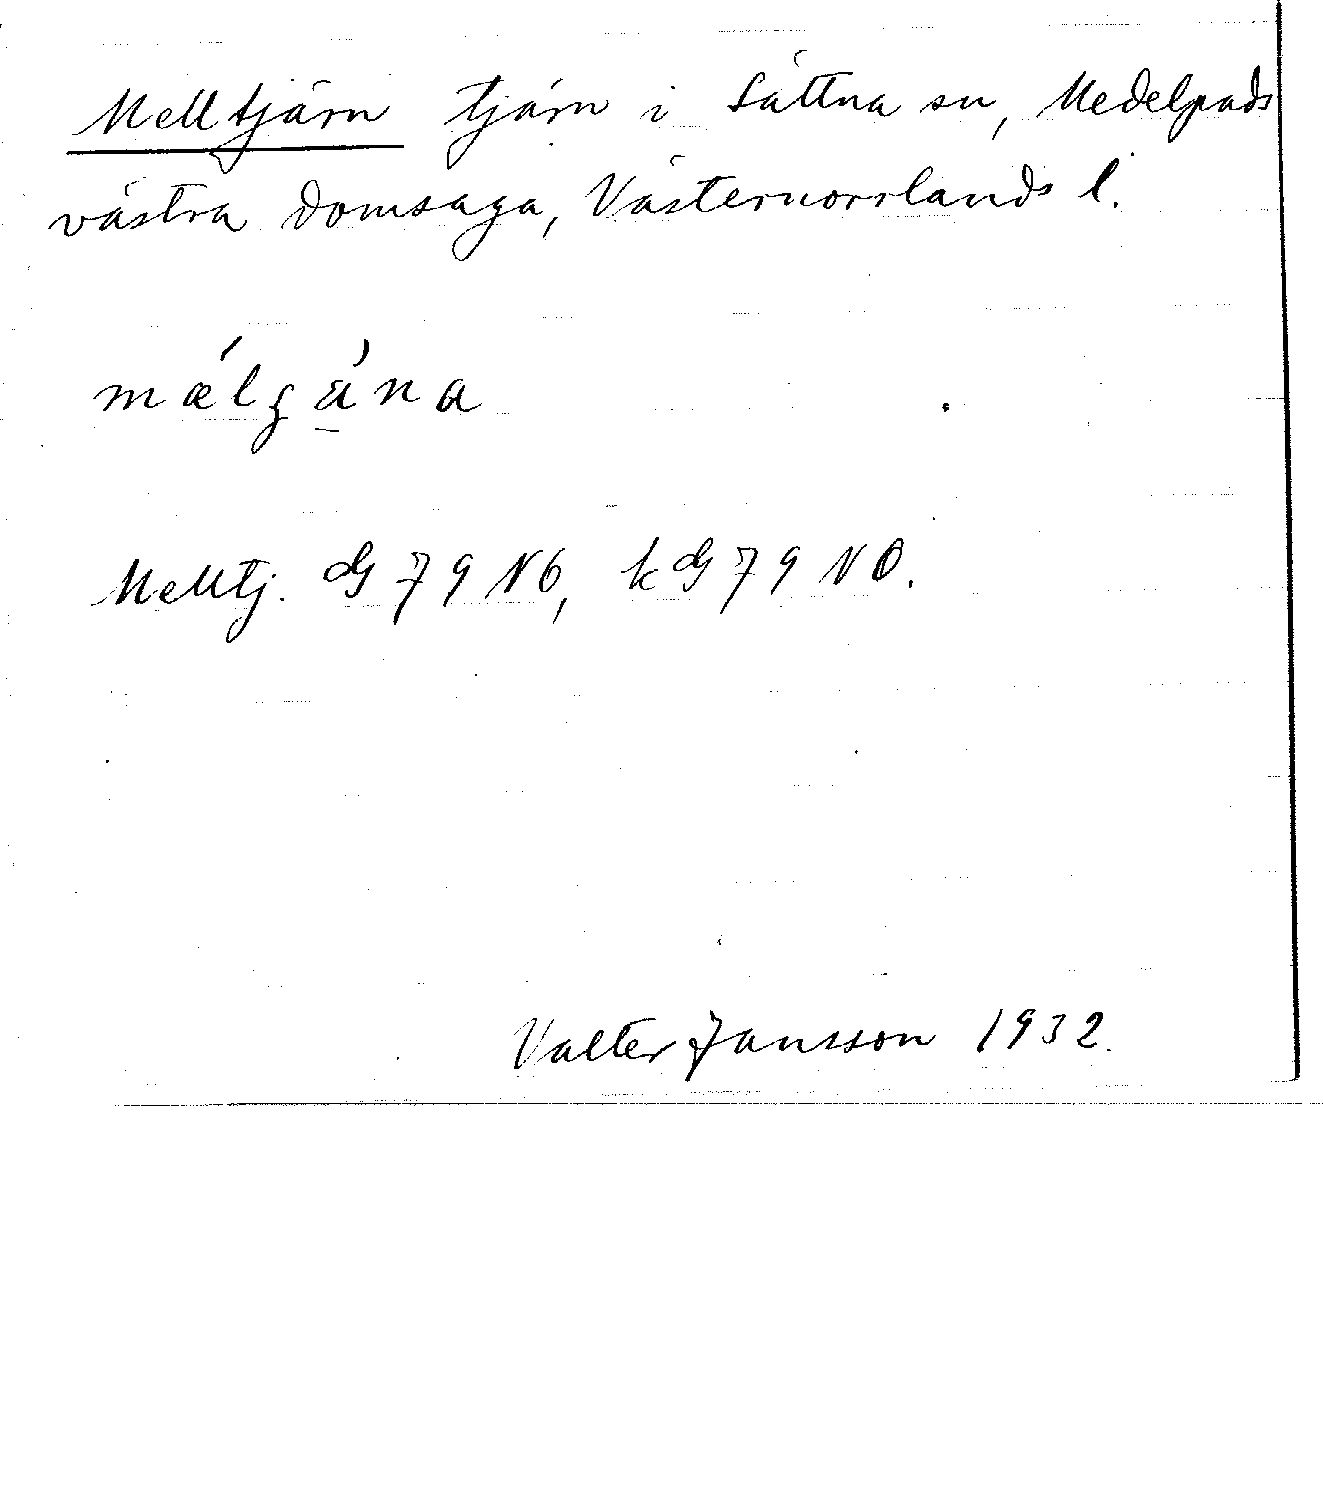 Melltjärn tjärn i Sättna sn, Medelpads
västra domsaga, Västernorrlands l.
mǽlgä́na
Melltj. G 79 NÖ, kG 79 NO.
Valter Jansson 1932.